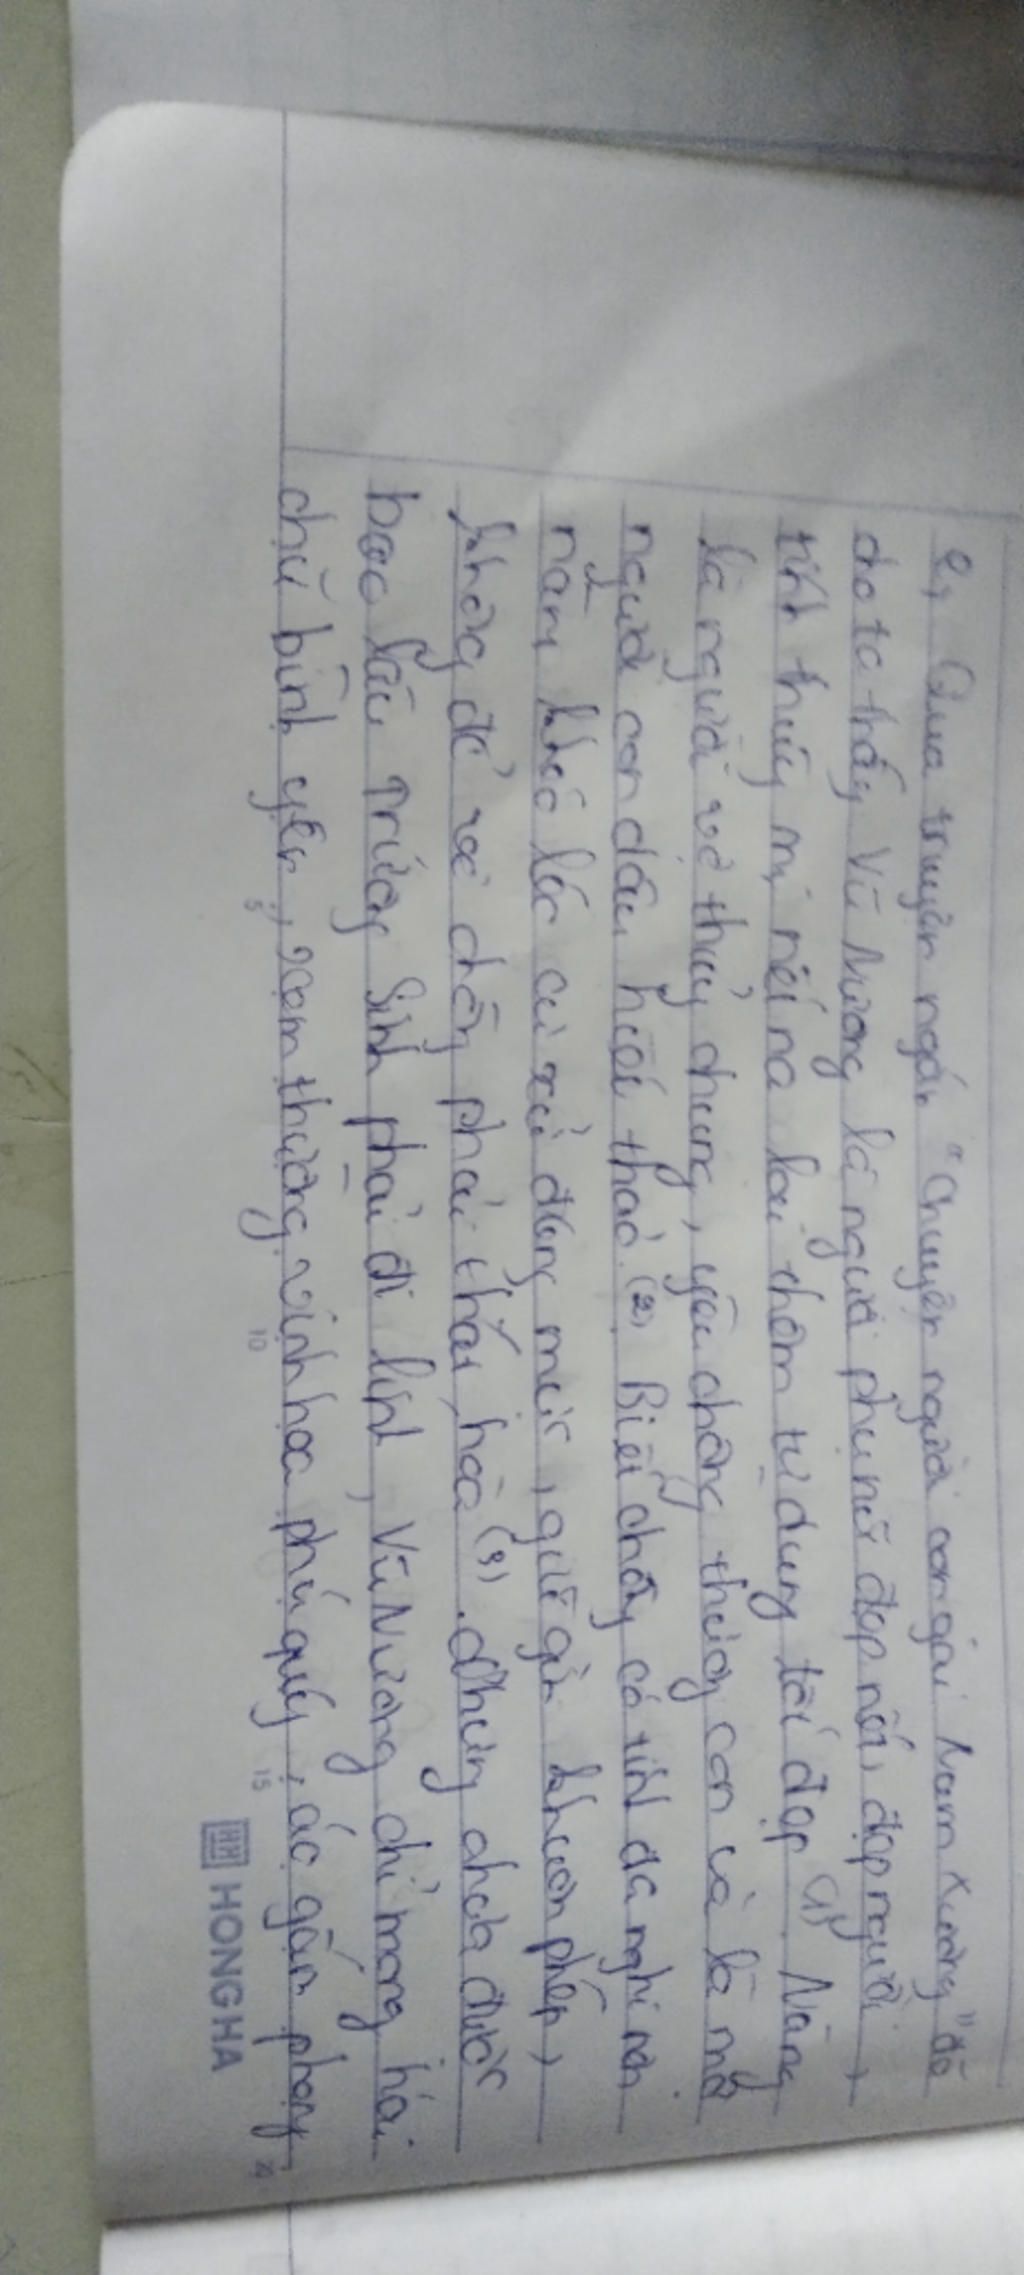 2, Qua truyện ngắn "Chuyện người con gái Nam Xương" đã
cho ta thấy Vũ Nương là người phụ nữ đẹp nết, đẹp người,
tính thùy mị nết na lại thêm tư dung tốt đẹp (1). Nàng
là người vợ thủy chung, yêu chồng thương con và là một
người con dâu hiếu thảo. (2) Biết chồng có tính đa nghi nên
nàng khéo léo cư xử đúng mực, giữ gìn khuôn phép,
không để vợ chồng phải thất hòa (3). Nhưng chưa được
bao lâu Trương Sinh phải đi lính, Vũ Nương chỉ mong hai
chữ bình yên, xem thường vinh hoa phú quý, áo gấm phong
5 10 15 20
HONG HA